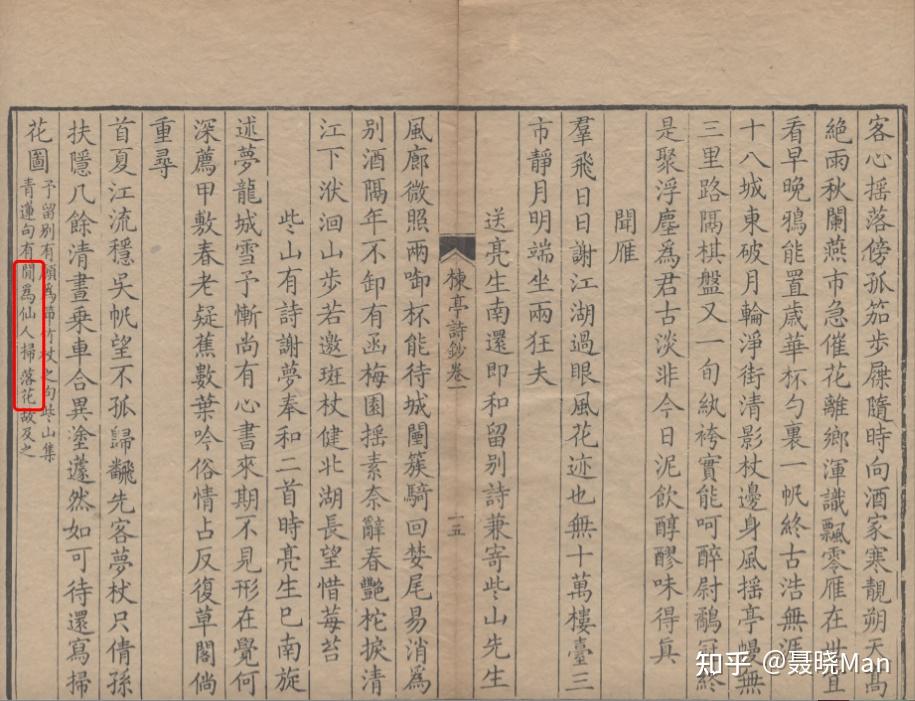 客心揺落傍孤笳步屧隨時向酒家寒靚朔天髙
絶兩秋闌燕市急催花離鄉渾識飄零雁在世宜
看早晚鴉能置歳華杯勺裏一帆終古浩無涯
十八城東破月輪淨街清影杖邊身風揺亭幔無
三里路隔棋盤又一旬紈袴實能呵醉尉鷸冠終
是聚浮塵爲君古淡非今日泥飲醇醪味得眞
聞雁
羣飛日日謝江湖過眼風花迹也無十萬樓臺三
市靜月明端坐兩狂夫
送亮生南還即和留别詩兼寄些山先生
楝亭詩鈔卷一
一五
風廊微照兩啣杯能待城闉簇騎回婪尾易消爲
别酒隔年不卸有函梅園揺素奈辭春艷柁捩清
江下洑洄山歩若邀斑杖健北湖長望惜莓苔
些山有詩謝夢奉和二首時亮生已南旋
述夢龍城雪予慚尚有心書來期不見形在覺何
深薦甲敷春老疑蕉數葉吟俗情占反復草閣倘
重尋
首夏江流穩吳帆望不孤歸飜先客夢杖只倩孫
扶隱几餘清晝乗車合異塗蘧然如可待還寫掃
花圖
予留别有願爲節竹杖之句些山集
青蓮句有閒爲仙人掃落花故及之
知乎 @聂晓Man